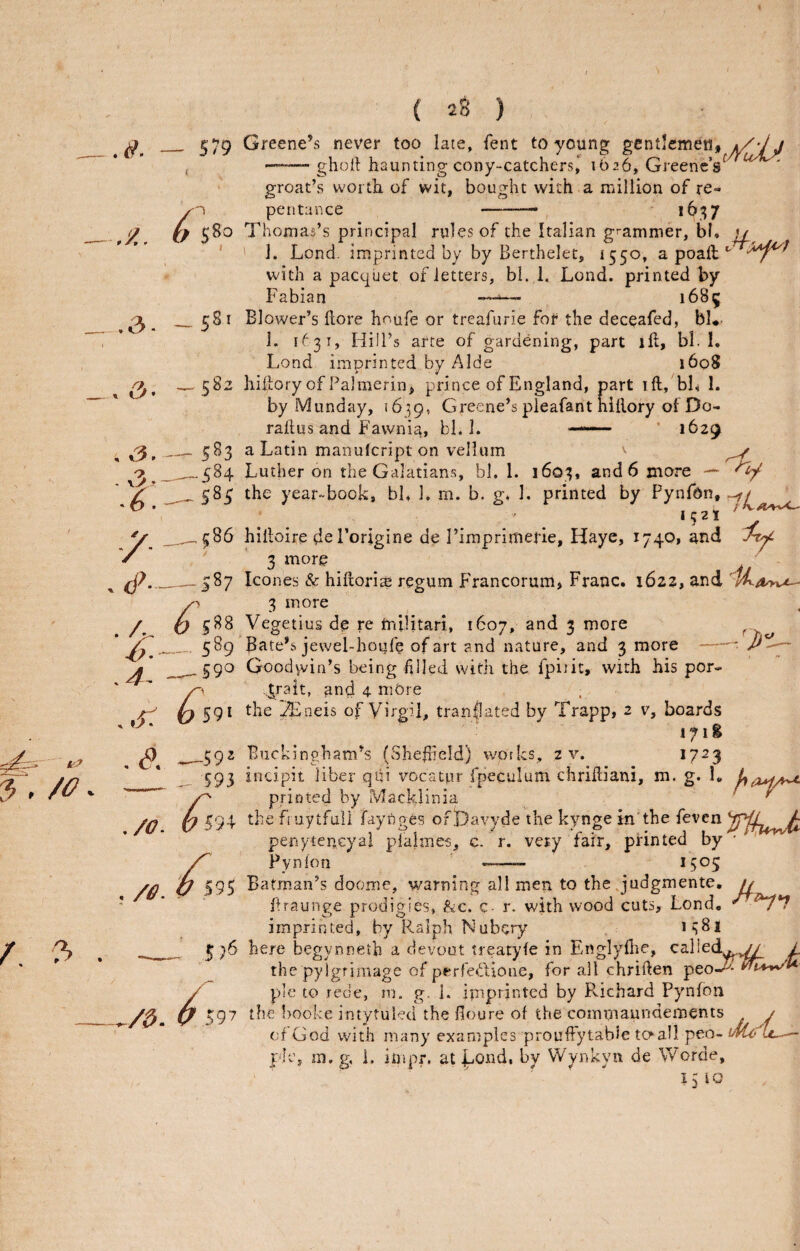 ( 28 )
.8. — 579 Greene's never too late, sent to young gentlemen,
—— ghost haunting cony-catchers, 1626, Greene's
groat's worth of wit, bought with a million of re-
pentance —— 1637
.2. 6 580 Thomas's principal rules of the Italian grammer, bl.
l. Lond. imprinted by by Berthelet, 1550, a poast
with a pacquet of letters, bl. l. Lond. printed by
Fabian —— 1685
.3. — 581 Blower's store house or treasurie for the deceased, bl.
l. 1631, Hill's arte of gardening, part 1st, bl. l.
Lond imprinted by Alde 1608
.3. — 582 history of Palmerin, prince of England, part 1st, bl. l.
by Munday, 1639, Greene's pleasant history of Do-
rastus and Fawnia, bl. l. —— 1629
.3. — 583 a Latin manuscript on vellum
.3. — 584 Luther on the Galatians, bl. l. 1603, and 6 more —
.6. — 585 the year-book, bl. l. m. b. g. l. printed by Pynson,
1521
— 586 histoire de l'origine de l'imprimerie, Haye, 1740, and
3 more
— 587 Icones & historiæ regum Francorum, Franc. 1622, and
3 more
.1. 6 588 Vegetius de re militari, 1607, and 3 more
— 589 Bate's jewel-house of art and nature, and 3 more ——
.4. — 590 Goodwin's being filled with the spirit, with his por-
trait, and 4 more
.5. 6 591 the Æneis of Virgil, translated by Trapp, 2 v, boards
1718
.8. — 592 Buckingham's (Sheffield) works, 2 v. 1723
3. 10. — 593 incipit liber qui vocatur speculum christiani, m. g. l.
printed by Macklinia
.10. 6 594 the fruytfull saynges of Davyde the kynge in the seven
penytencyal psalmes, c. r. very fair, printed by
Pynson —— 1505
.10. 6 595 Batman's doome, warning all men to the judgmente.
straunge prodigies, &c. c. r. with wood cuts, Lond.
imprinted, by Ralph Nubery 1581
1. 3. — 596 here begynneth a devout treatyse in Englyshe, called
the pylgrimage of perfectione, for all christen peo-
ple to rede, m. g. l. imprinted by Richard Pynson
.13. 6 597 the booke intytuled the floure of the commaundements
of God with many examples prouffytable to all peo-
ple, m. g. l. impr. at Lond. by Wynkyn de Worde,
1510